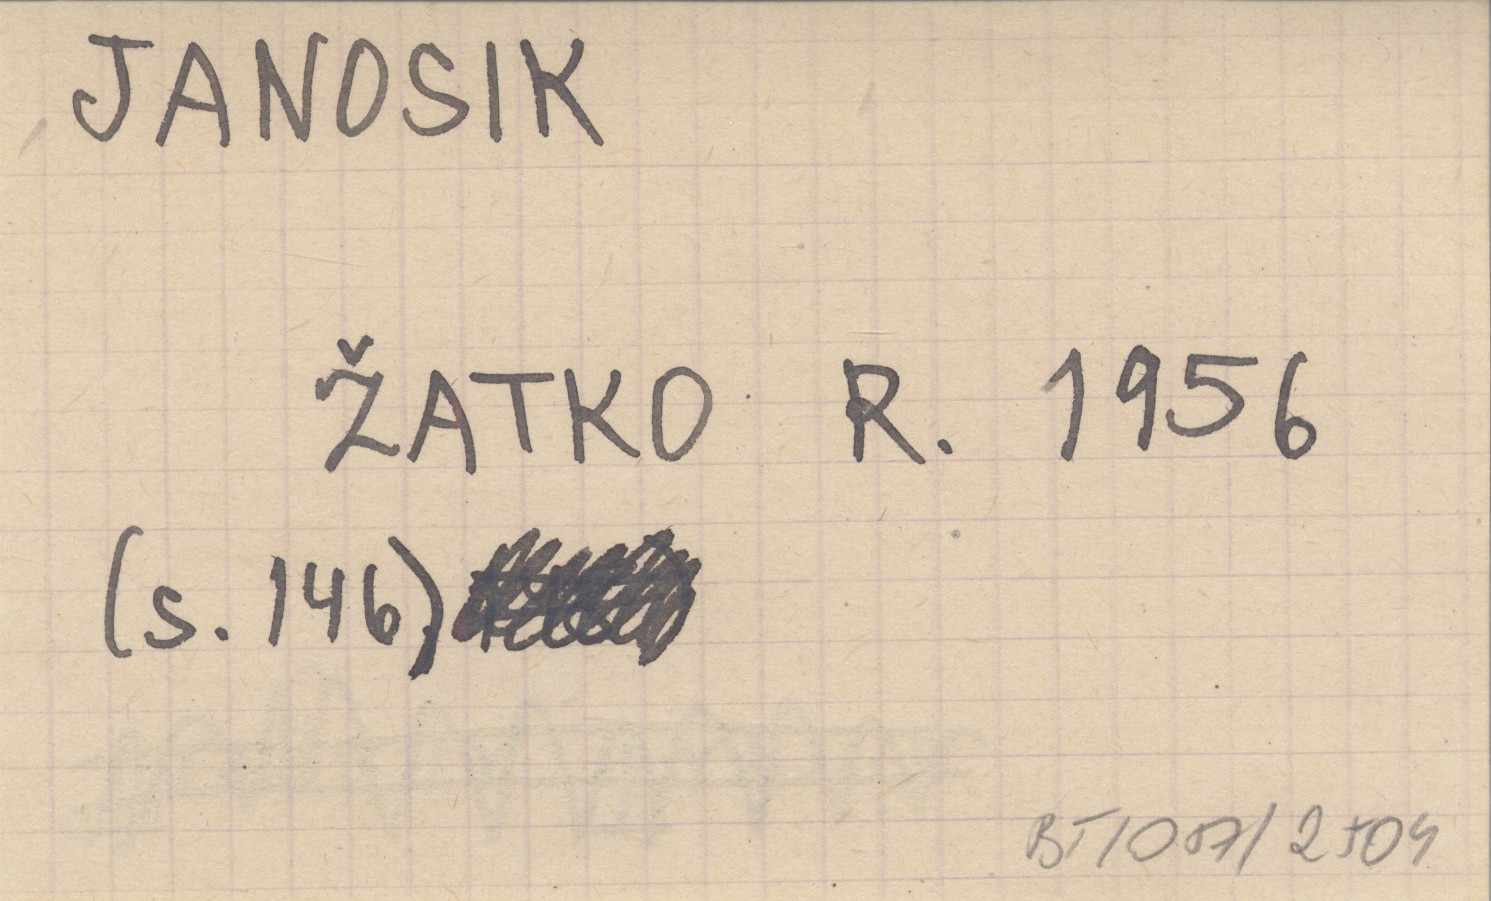 JANOSIK
ŽATKO R. 1956
(s. 146)
BT/057/2504